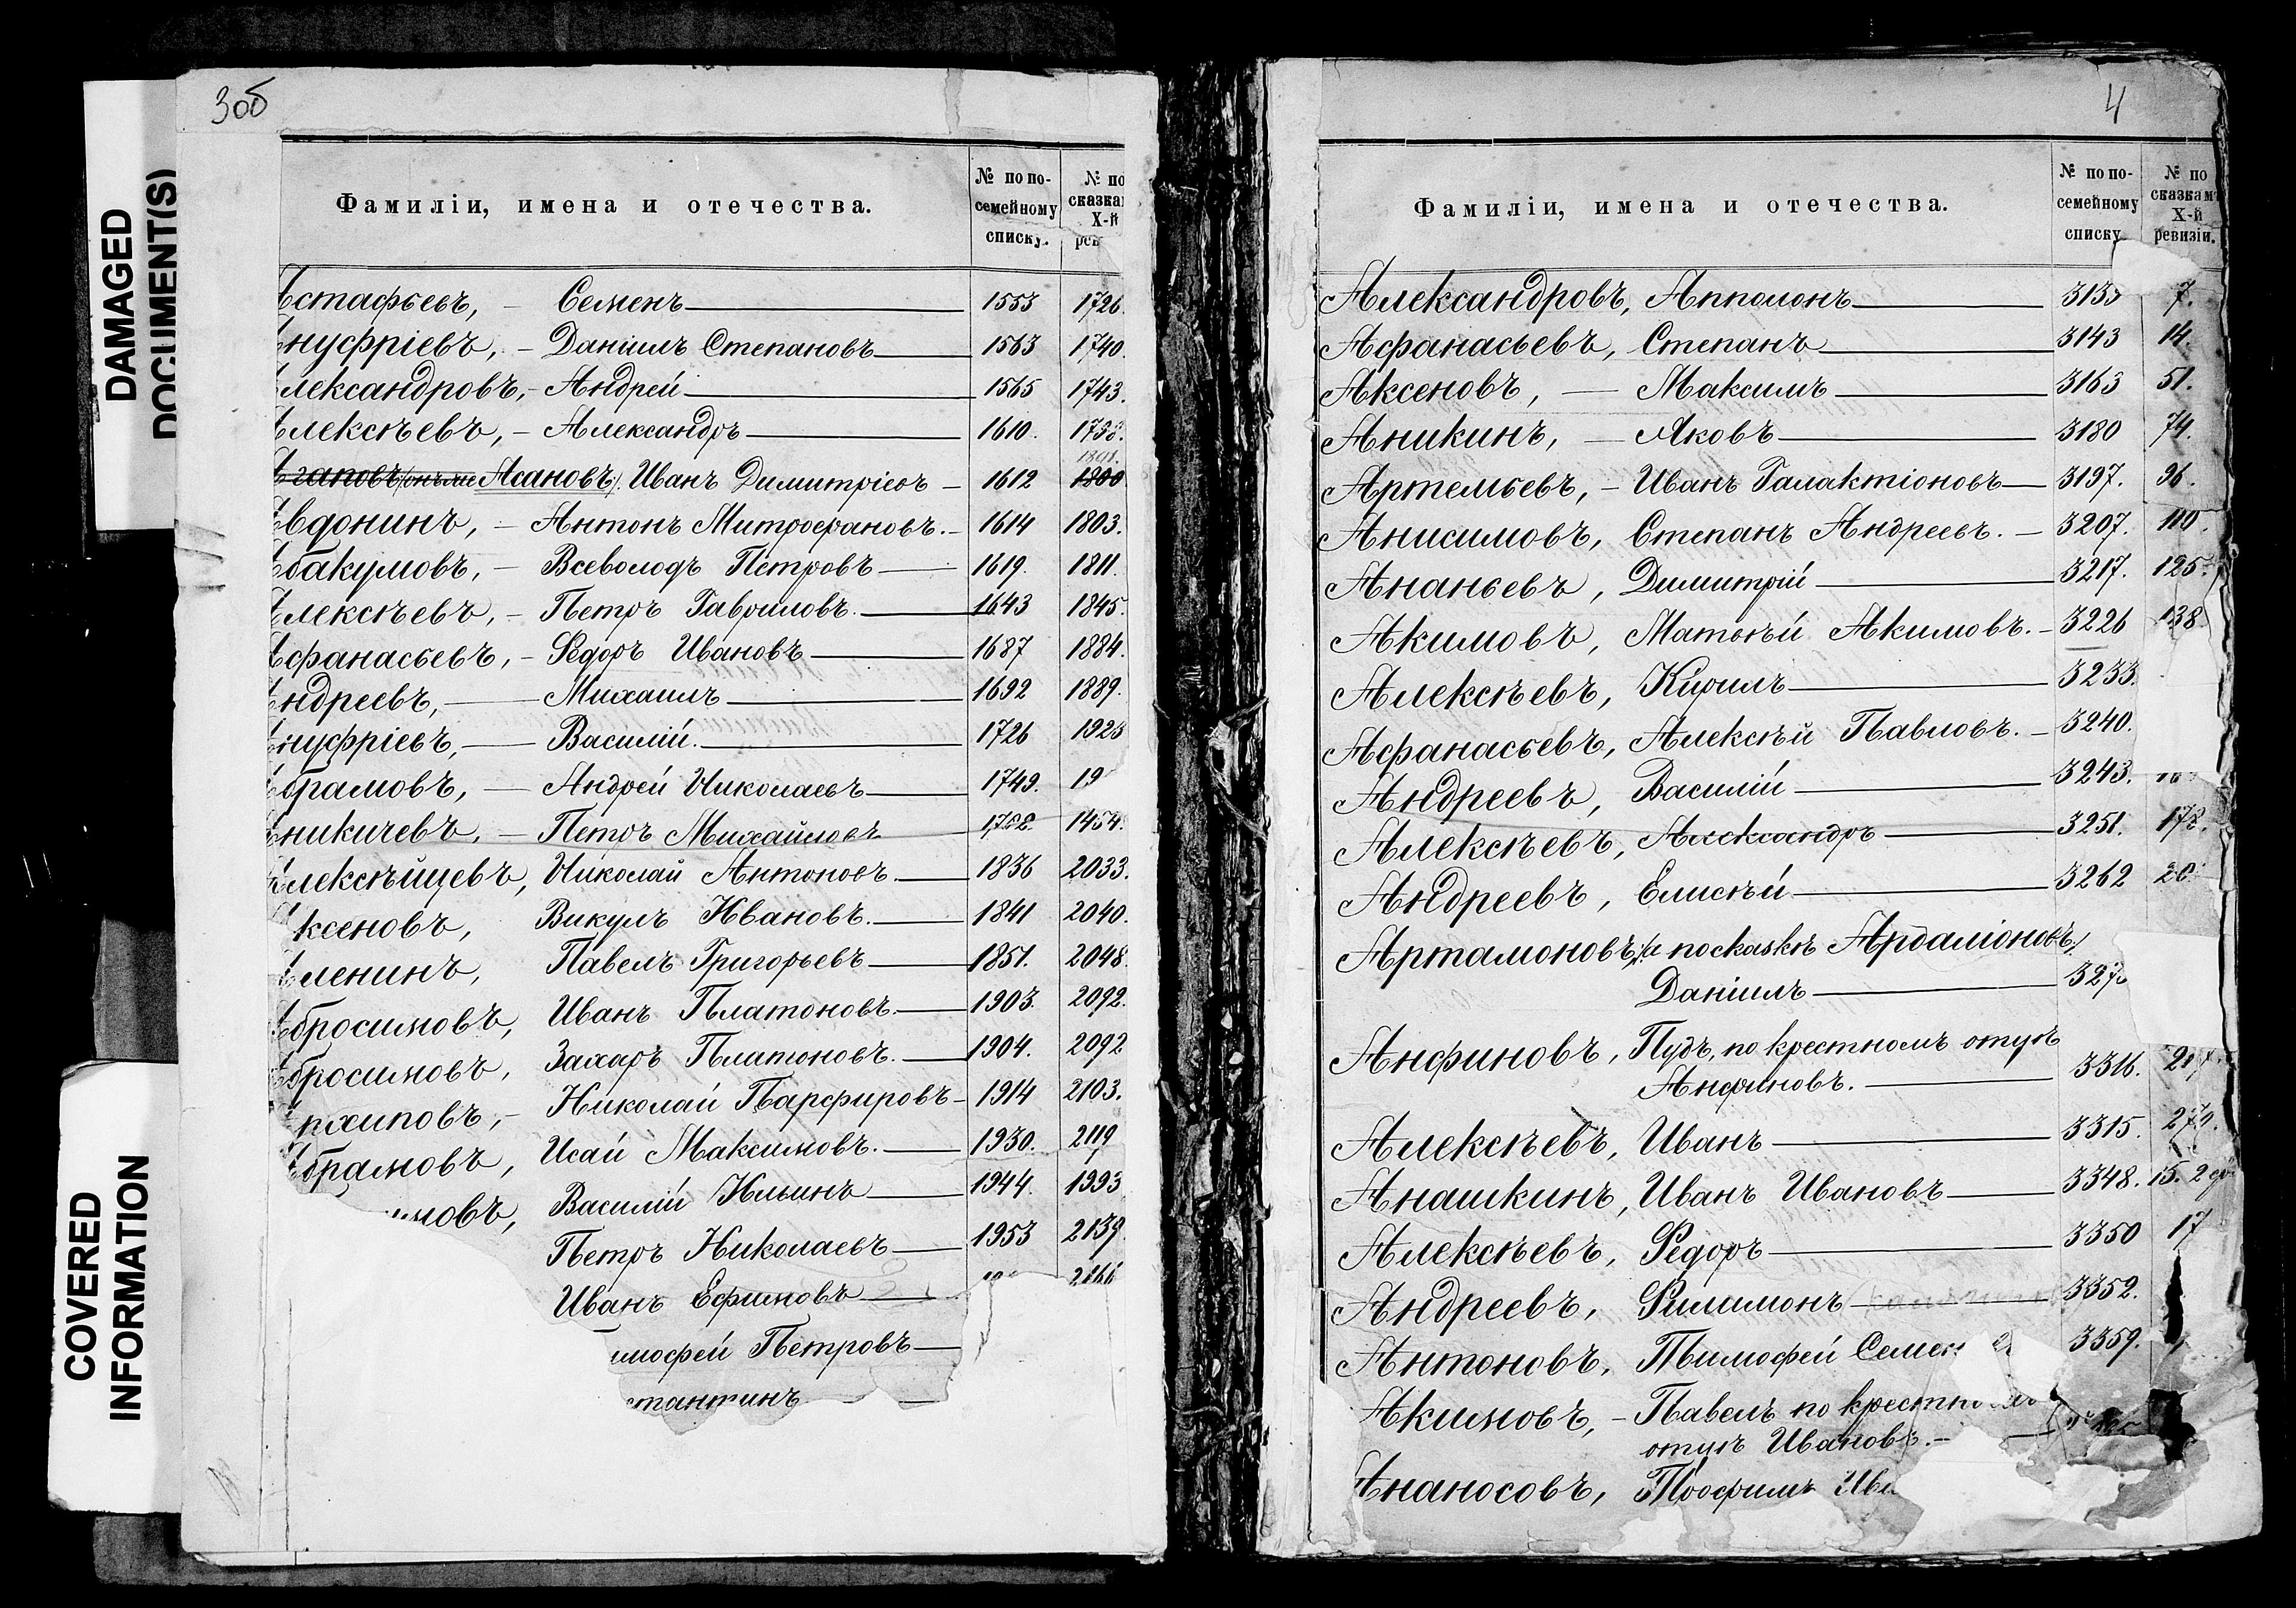 DAMAGED
DOCUMENT(S)
COVERED
INFORMATION
3об
Фамиліи, имена и отечества. № по по-семейному списку. № по сказка Х-й рев
Астафьевъ, - Семенъ 1553 1726.
Ануфріевъ, - Даніилъ Степановъ 1563 1740.
Александровъ, - Андрей 1565 1743.
Алексѣевъ, - Александръ 1610.
Агаповъ Асановъ). Иванъ Димитріевъ - 1612 1800
Авдонинъ, - Антонъ Митрофановъ. - 1614 1803.
Абакумовъ, - Всеволодъ Петровъ 1619. 1811.
Алексѣевъ, - Петръ Гавриловъ. 1643 1845.
Афанасьевъ, - Ѳедоръ Ивановъ 1687 1884.
Андреевъ, Михаилъ 1692 1889.
Ануфріевъ, Василій. 1726 1923
Абрамовъ, Андрей Николаевъ 1749. 19
Аникичевъ, - Петръ Михайловъ 1454.
Алексѣйцевъ, Николай Антоновъ. 1836 2033.
Аксеновъ, Викулъ Ивановъ. 1841 2040.
Аленинъ, Павелъ Григорьевъ 1851. 2048
Абросимовъ, Иванъ Платоновъ. 1903. 2092.
Абросимовъ, Захаръ Платоновъ. 1904. 2092
Архиповъ, - Николай Парфировъ - 1914 2103.
Абрамовъ, Исай Максимовъ. 1930. 2119
имовъ, Василій Ильинъ 1944. 1993
Петръ Николаевъ 1953 2139.
Иванъ Ефимовъ 2166
имофей Петровъ
стантинъ
4
Фамиліи, имена и отечества. № по по-семейному списку № по сказкам Х-й ревизіи.
Александровъ, Апполонъ 313 7.
Афанасьевъ, Степанъ 3143 14.
Аксеновъ, Максимъ 3163 51.
Аникинъ, Яковъ 3180 74.
Артемьевъ, - Иванъ Галактіоновъ 3197. 96.
Анисимовъ, Степанъ Андреевъ. - 3207. 110.
Ананьевъ, Димитрій 3217. 125.
Акимовъ, Матвѣй Акимовъ. - 3226 138.
Алексѣевъ, Кирилъ 3233.
Афанасьевъ, Алексѣй Павловъ. - 3240.
Андреевъ, Василій 3243.
Алексѣевъ, Александръ 3251. 178.
Андреевъ, Елисѣй 3262 20
Артамоновъ, (а посказкѣ Ардаліоновъ)
Даніилъ 327
Анфиновъ, Пудъ, по крестномъ отцѣ
Анфиновъ. 3316.
Алексѣевъ, Иванъ 3315. 279.
Анашкинъ, Иванъ Ивановъ 3348. 15. 2
Алексѣевъ, Ѳедоръ 3350 17
Андреевъ, Филимонъ 3352.
Антоновъ, Тимофей Семен 3359.
Акимовъ, - Павелъ по крестн
отцѣ Ивановъ. -
Ананосовъ, Трофимъ Ива